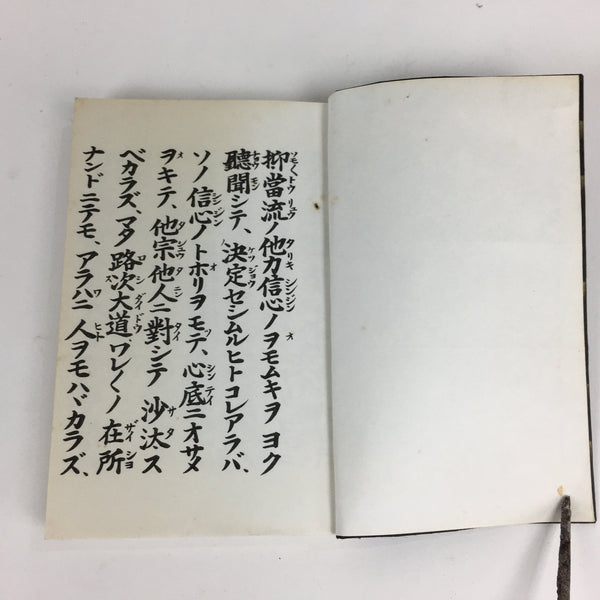 抑當流ノ他力信心ノヲモムキヲヨク
聽聞シテ、決定セシムルヒトコレアラバ、
ソノ信心ノトホリヲモテ、心底ニオサメ
ヲキテ、他宗他人ニ對シテ沙汰ス
ベカラズ、マタ路次大道ワレ〱ノ在所
ナンドニテモ、アラハニ人ヲモハヾカラズ、